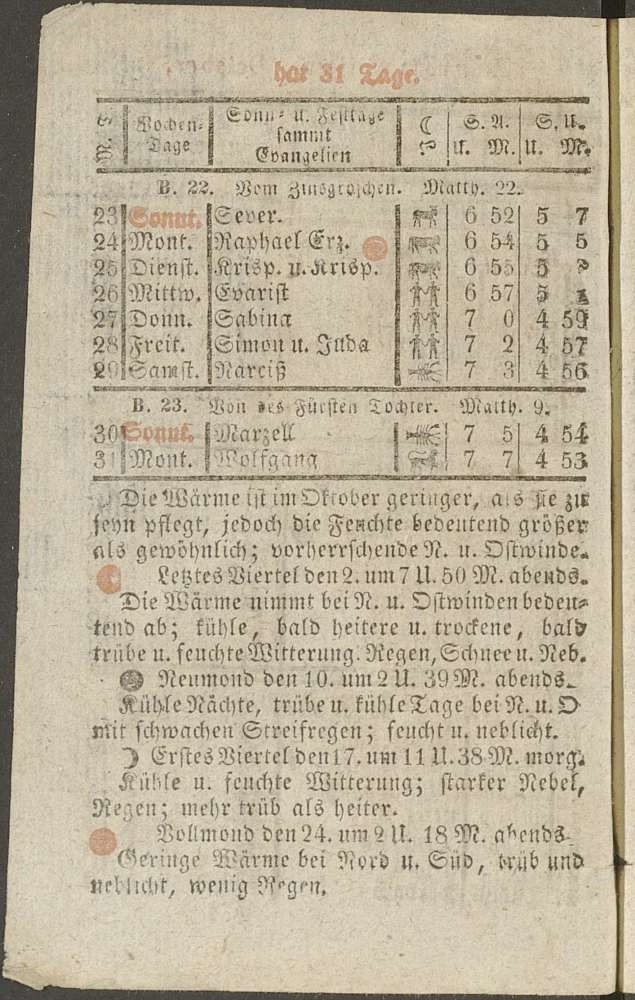 hat 31 Tage.
Wochen- Tage Sonn- u. Festtage sammt Evangelien ☾ S. A. S. U.
u. M. u. M.
B. 22. Vom Zinsgroschen. Matth. 22.
23 Sonnt. Sever. 6 52 5 7
24 Mont. Raphael Erz. 6 54 5 5
25 Dienst. Krisp. u. Krisp. 6 55 5
26 Mittw. Evarist 6 57 5
27 Donn. Sabina 7 0 4 59
28 Freit. Simon u. Juda 7 2 4 57
29 Samst. Narciß 7 3 4 56
B. 23. Von des Fürsten Tochter. Matth. 9.
30 Sonnt. Marzell 7 5 4 54
31 Mont. Wolfgang 7 7 4 53
Die Wärme ist im Oktober geringer, als sie zu
seyn pflegt, jedoch die Feuchte bedeutend größer
als gewöhnlich; vorherrschende N. u. Ostwinde.
Letztes Viertel den 2. um 7 U. 50 M. abends.
Die Wärme nimmt bei N. u. Ostwinden bedeu-
tend ab; kühle, bald heitere u. trockene, bald
trübe u. feuchte Witterung. Regen, Schnee u. Neb.
Neumond den 10. um 2 U. 39 M. abends.
Kühle Nächte, trübe u. kühle Tage bei N. u. O
mit schwachen Streifregen; feucht u. neblicht.
☽ Erstes Viertel den 17. um 11 U. 38 M. morg.
Kühle u. feuchte Witterung; starker Nebel,
Regen; mehr trüb als heiter.
Vollmond den 24. um 2 U. 18 M. abends.
Geringe Wärme bei Nord u. Süd, trüb und
neblicht, wenig Regen.